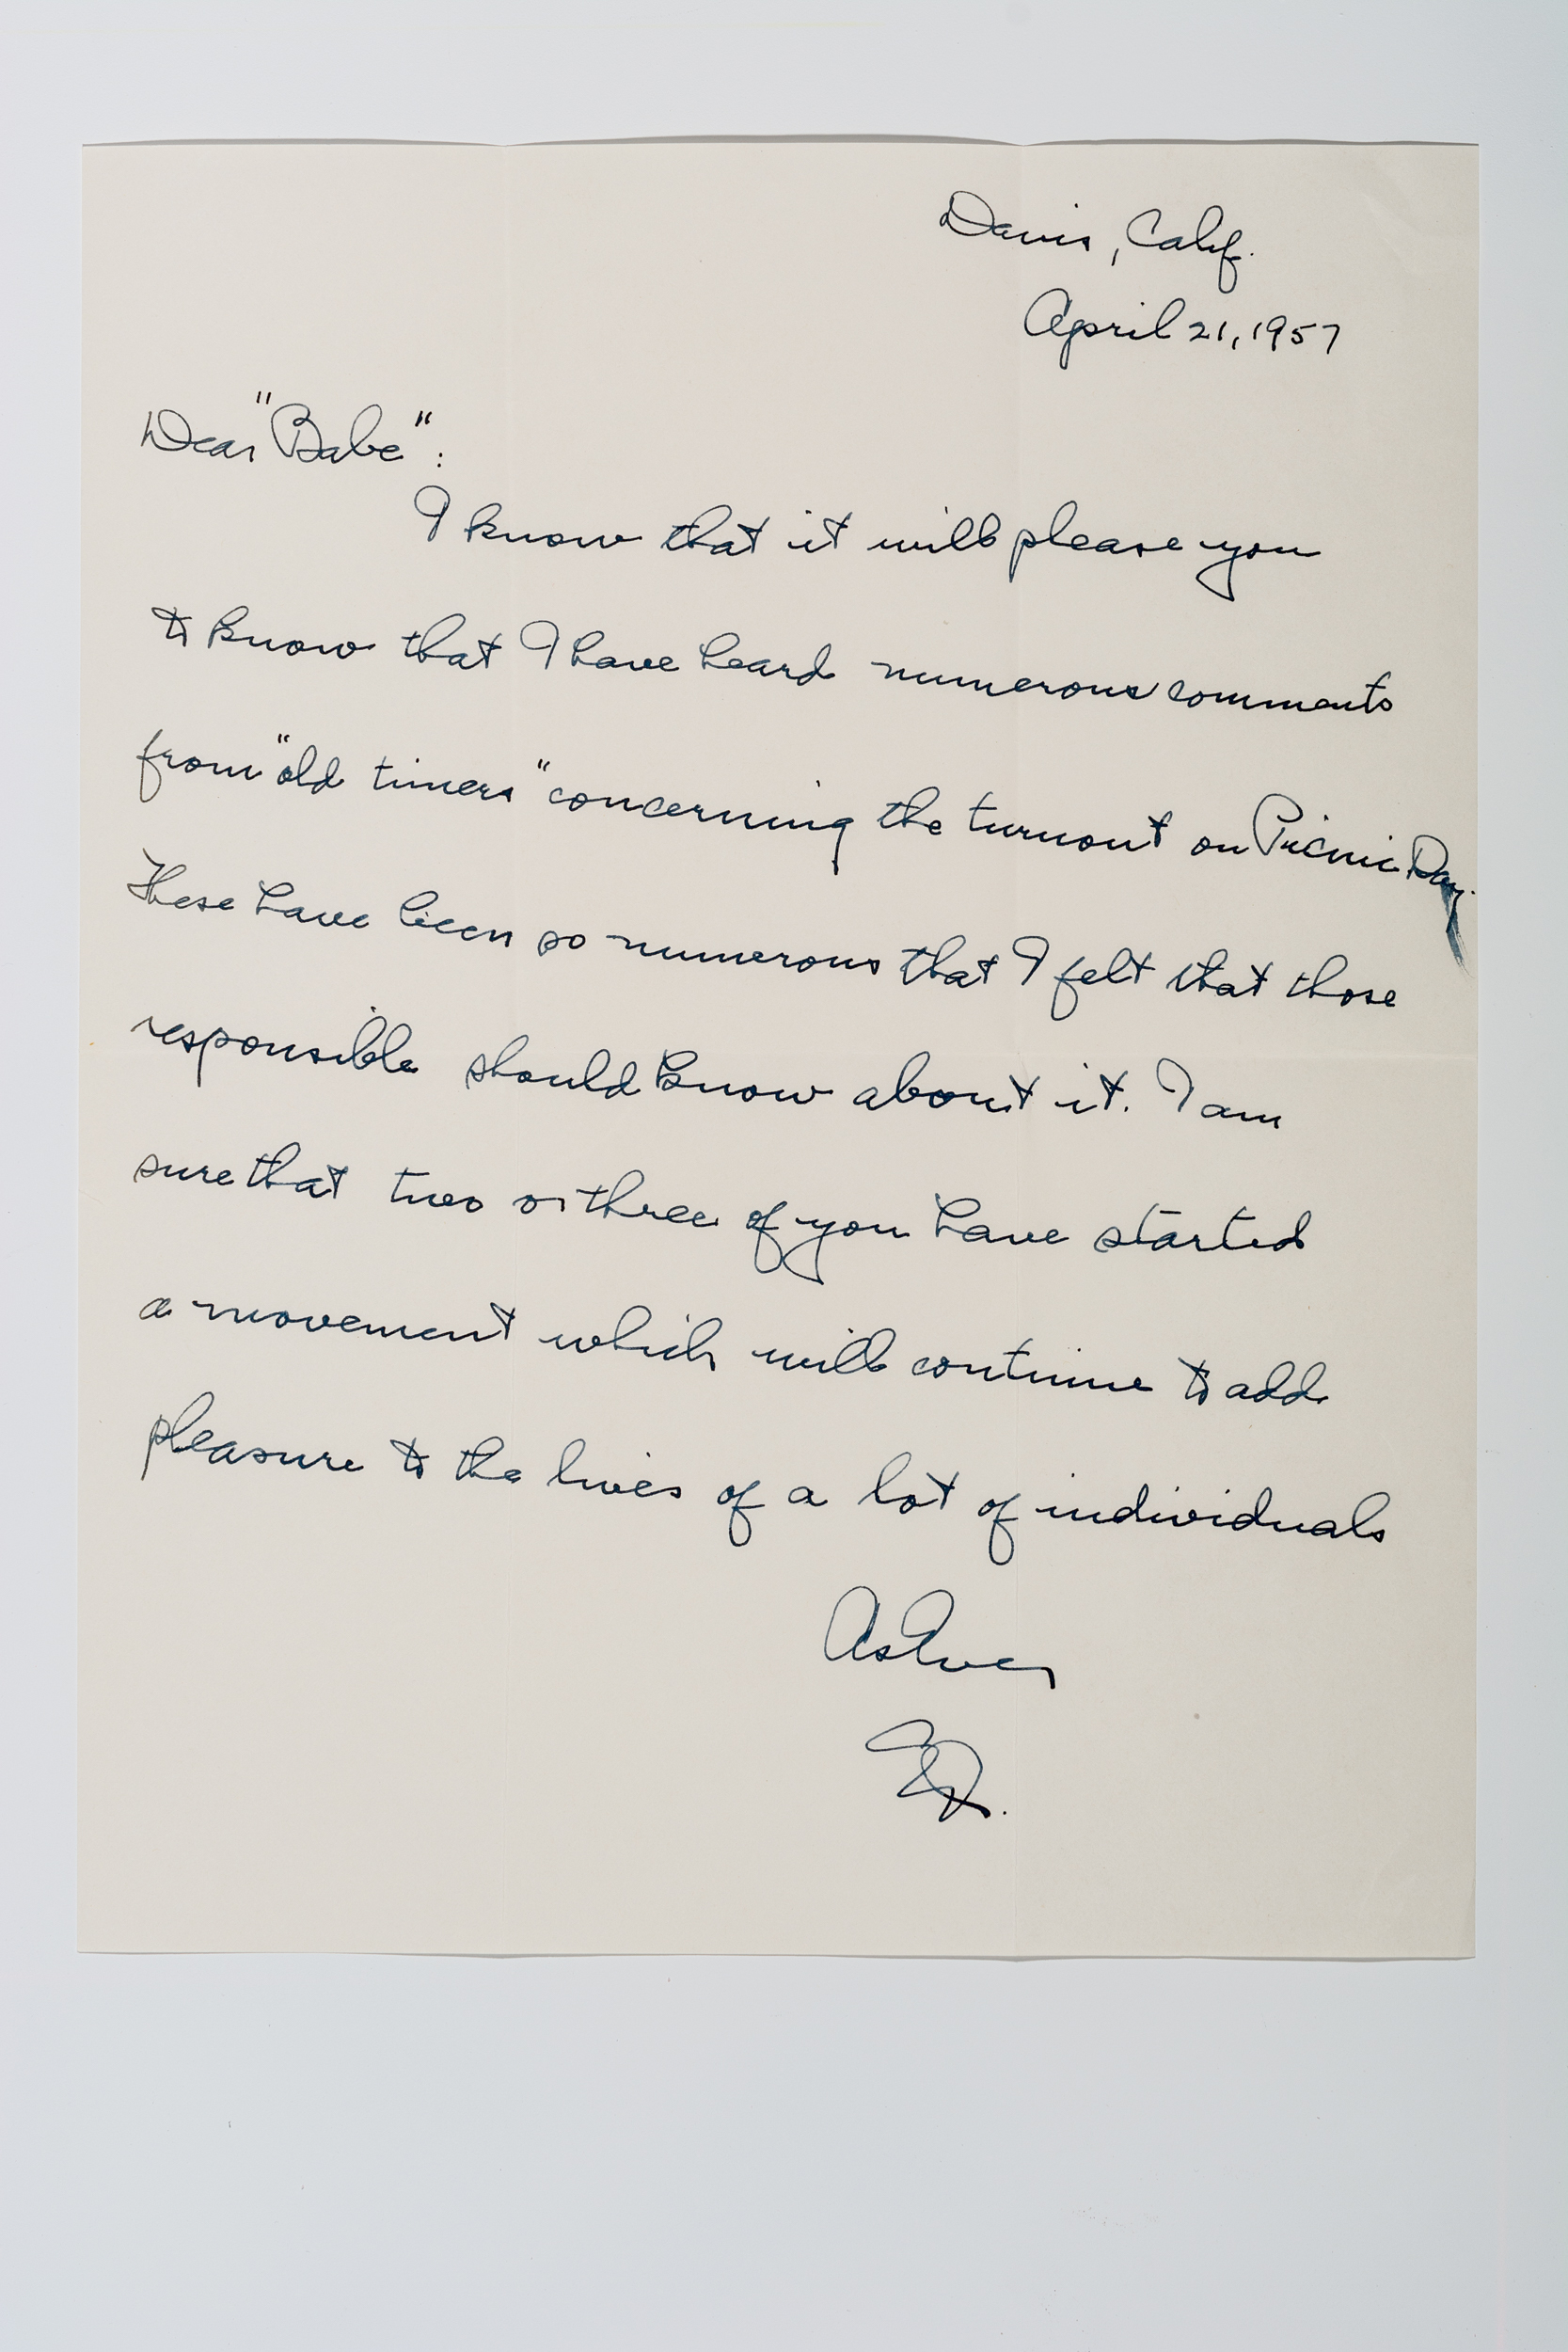 Davis, Calif.
April 21, 1957
Dear "Babe":
I know that it will please you
to know that I have heard numerous comments
from "old timers" concerning the turnout on Picnic Day.
These have been so numerous that I felt that those
responsible should know about it. I am
sure that two or three of you have started
a movement which will continue to add
pleasure to the lives of a lot of individuals
As Ever